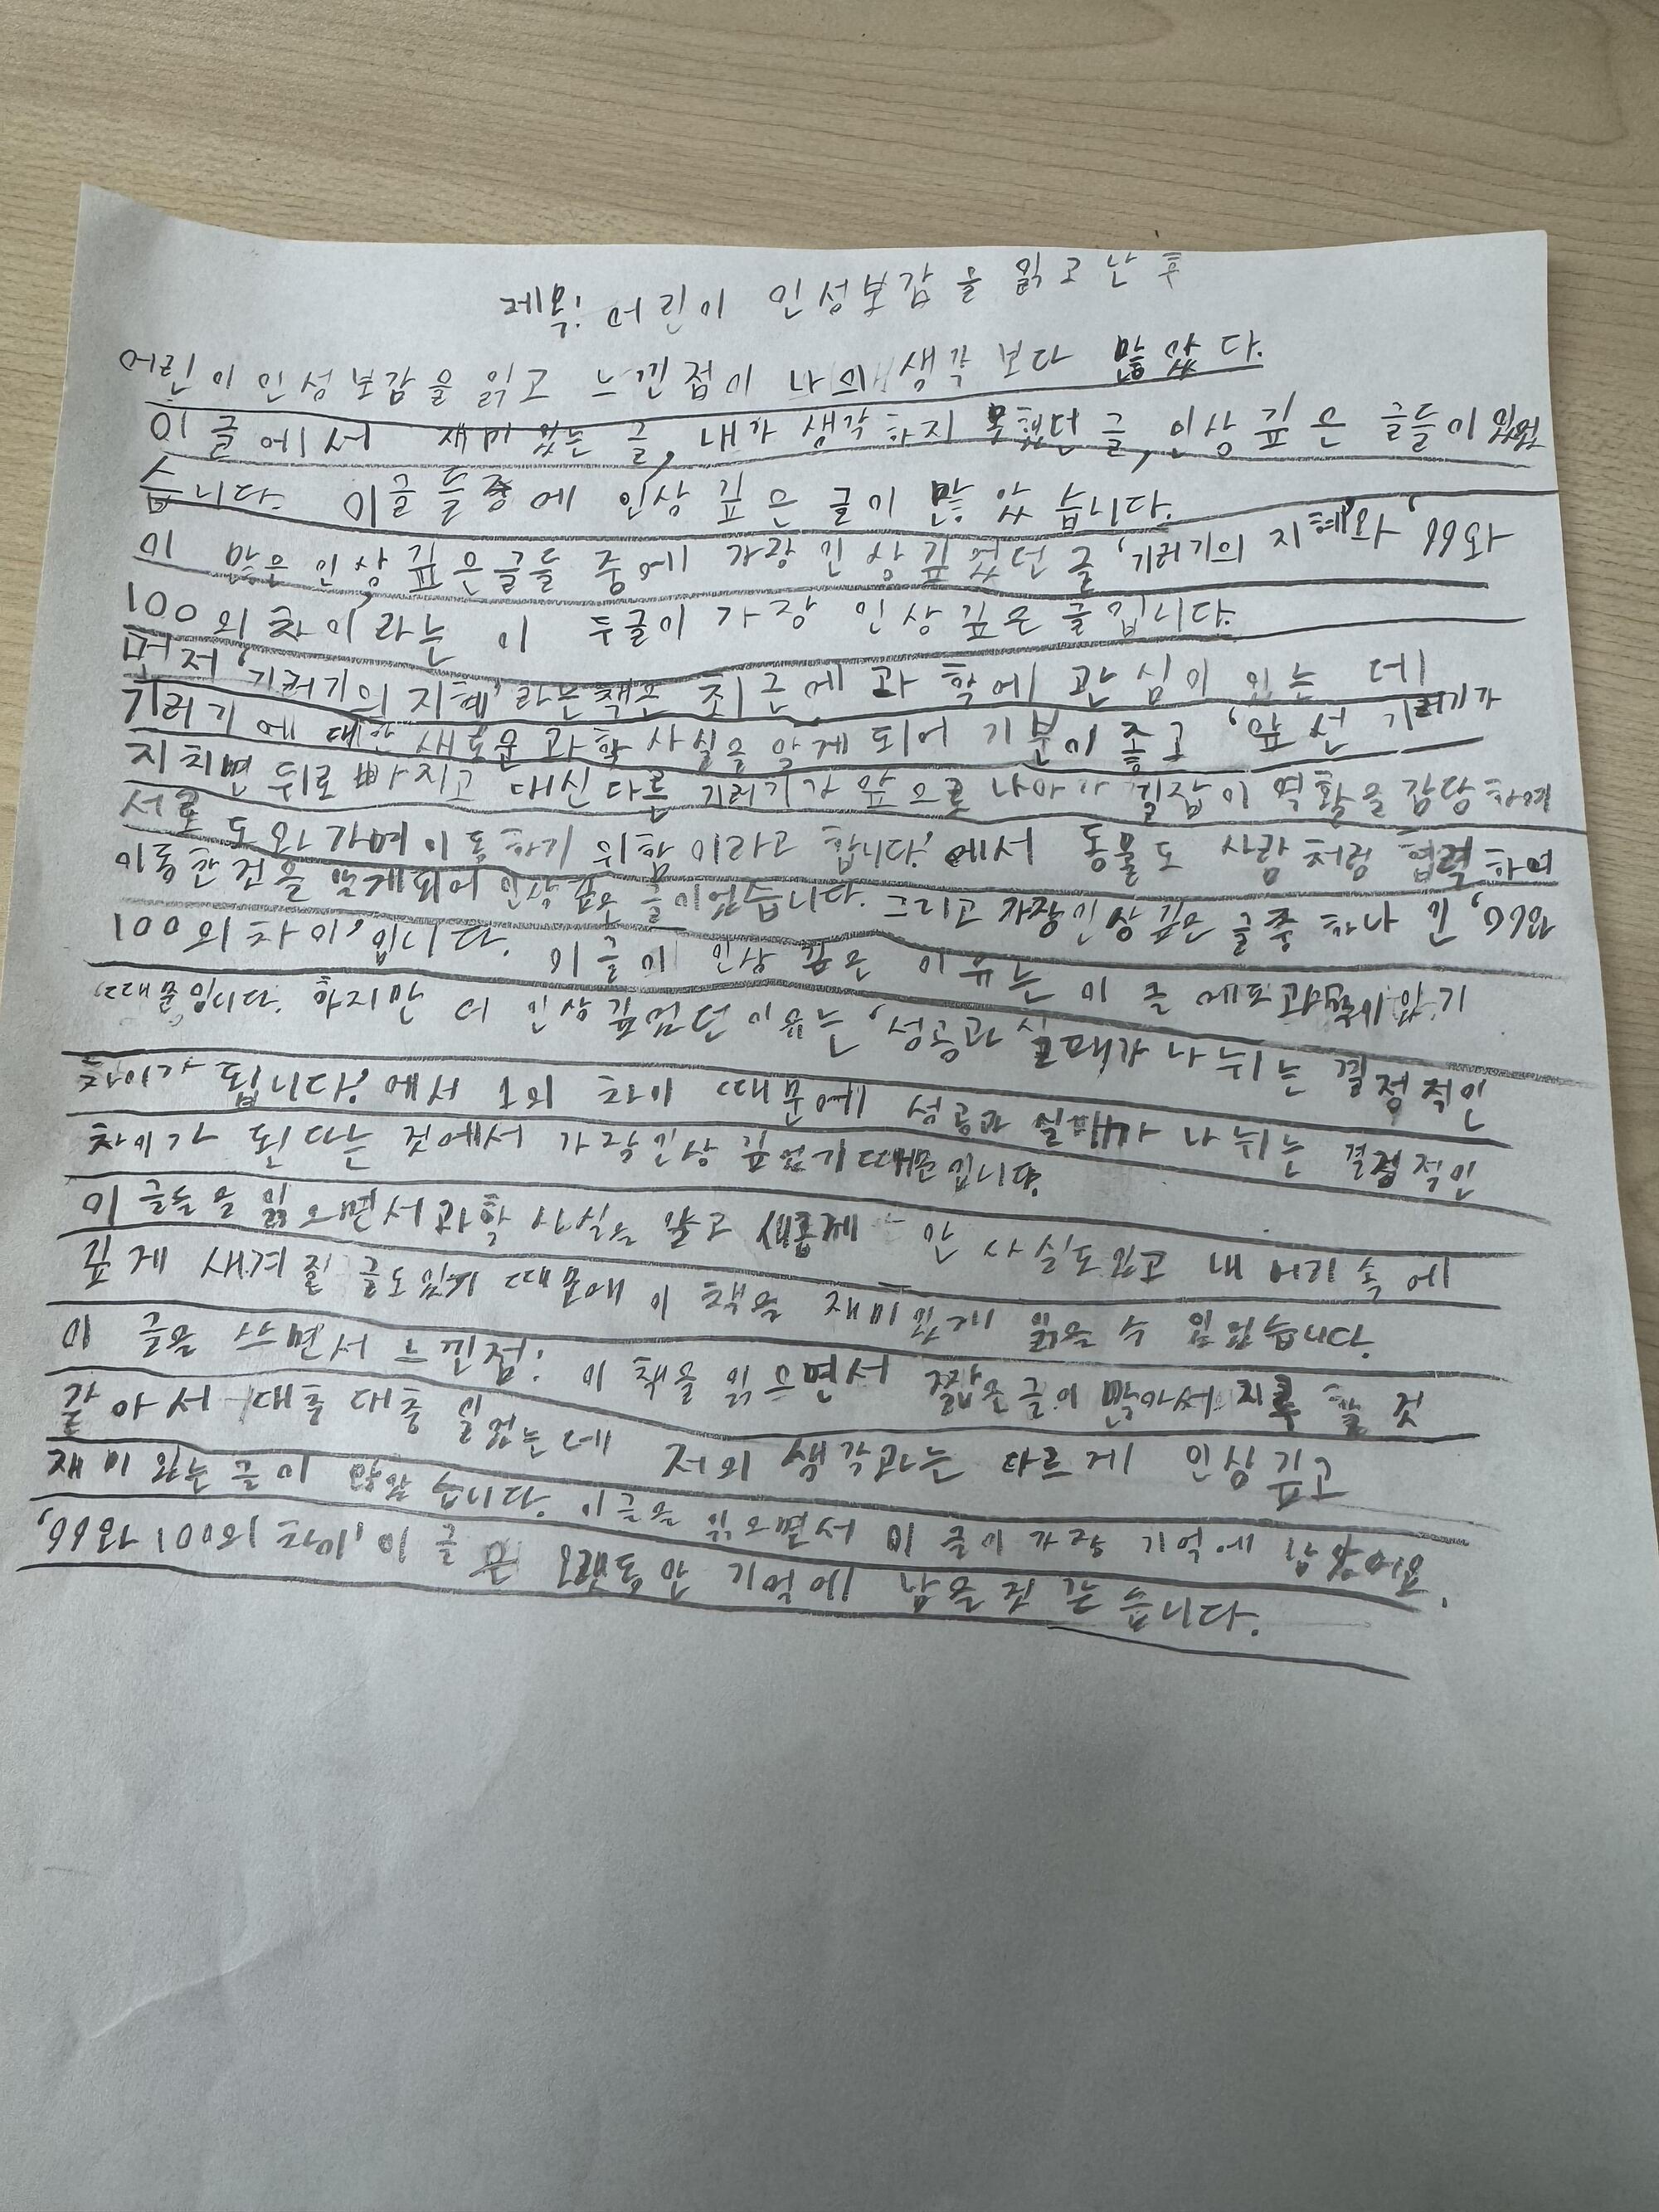 제목: 어린이 인성보감을 읽고 난 후
어린이 인성보감을 읽고 느낀점이 나의 생각보다 많았다.
이 글에서 재미있는 글, 내가 생각하지 못했던 글, 인상 깊은 글들이 있었
습니다. 이글들중에 인상 깊은 글이 많았습니다.
이 많은 인상 깊은글들 중에 가장 인상 깊었던 글 '기러기의 지혜'와 '99와
100의 차이'라는 이 두글이 가장 인상 깊은 글입니다.
먼저 '기러기의 지혜'라는책은 최근에 과학에 관심이 있는데
기러기에 대한 새로운 과학 사실을 알게 되어 기분이 좋고 '앞선 기러기가
지치면 뒤로 빠지고 대신 다른 기러기가 앞으로 나아가 길잡이 역할을 감당하며
서로 도와가며 이동하기 위함이라고 합니다.'에서 동물도 사람처럼 협력하며
이동한 것을 알게되어 인상깊은 글이었습니다. 그리고 가장인상깊은 글중 하나인 '99와
100의 차이'입니다. 이 글이 인상 깊은 이유는 이 글에도 과학이 있기
때문입니다. 하지만 더 인상깊었던 이유는 '성공과 실패가 나뉘는 결정적인
차이가 됩니다.'에서 1의 차이 때문에 성공과 실패가 나뉘는 결정적인
차이가 된다는 것에서 가장인상 깊었기 때문입니다.
이 글들을 읽으면서 과학 사실을 알고 새롭게 안 사실도있고 내 머리속에
깊게 새겨질 글도있기 때문에 이 책을 재미있게 읽을 수 있었습니다.
이 글을 쓰면서 느낀점: 이 책을 읽으면서 짧은글이 많아서 지루할 것
같아서 대충 대충 읽었는데 저의 생각과는 다르게 인상깊고
재미있는 글이 많았습니다. 이글을 읽으면서 이 글이 가장 기억에 남았어요.
'99와 100의 차이' 이 글은 오랫동안 기억에 남을것 같습니다.